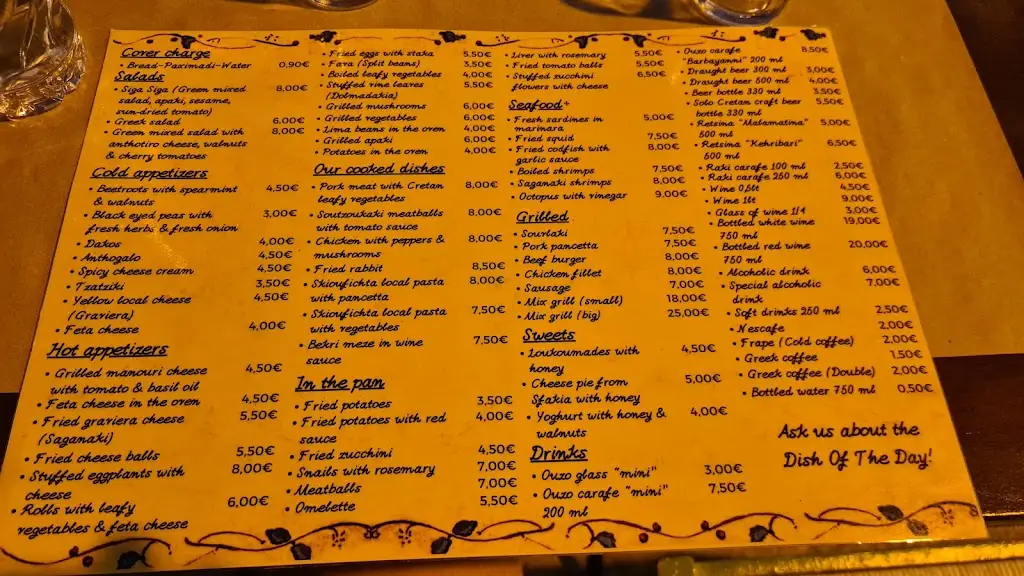 Cover charge
• Bread-Paximadi-Water 0,90€
Salads
• Siga Siga (Green mixed 8,00€
salad, apaki, sesame,
sun-dried tomato)
• Greek salad 6,00€
• Green mixed salad with 8,00€
anthotiro cheese, walnuts
& cherry tomatoes
Cold appetizers
• Beetroots with spearmint 4,50€
& walnuts
• Black eyed peas with 3,00€
fresh herbs & fresh onion
• Dakos 4,00€
• Anthogalo 4,50€
• Spicy cheese cream 4,50€
• Tzatziki 3,50€
• Yellow local cheese 4,50€
(Graviera)
• Feta cheese 4,00€
Hot appetizers
• Grilled manouri cheese 4,50€
with tomato & basil oil
• Feta cheese in the oven 4,50€
• Fried graviera cheese 5,50€
(Saganaki)
• Fried cheese balls 5,50€
• Stuffed eggplants with 8,00€
cheese
• Rolls with leafy 6,00€
vegetables & feta cheese
• Fried eggs with staka 5,50€
• Fava (Split beans) 3,50€
• Boiled leafy vegetables 4,00€
• Stuffed vine leaves 5,50€
(Dolmadakia)
• Grilled mushrooms 6,00€
• Grilled vegetables 6,00€
• Lima beans in the oven 4,00€
• Grilled apaki 6,00€
• Potatoes in the oven 4,00€
Our cooked dishes
• Pork meat with Cretan 8,00€
leafy vegetables
• Soutzoukaki meatballs 8,00€
with tomato sauce
• Chicken with peppers & 8,00€
mushrooms
• Fried rabbit 8,50€
• Skioufichta local pasta 8,00€
with pancetta
• Skioufichta local pasta 7,50€
with vegetables
• Bekri meze in wine 7,50€
sauce
In the pan
• Fried potatoes 3,50€
• Fried potatoes with red 4,00€
sauce
• Fried zucchini 4,50€
• Snails with rosemary 7,00€
• Meatballs 7,00€
• Omelette 5,50€
• Liver with rosemary 5,50€
• Fried tomato balls 5,50€
• Stuffed zucchini 6,50€
flowers with cheese
Seafood+
• Fresh sardines in 5,00€
marinara
• Fried squid 7,50€
• Fried codfish with 8,00€
garlic sauce
• Boiled shrimps 7,50€
• Saganaki shrimps 8,00€
• Octopus with vinegar 9,00€
Grilled
• Souvlaki 7,50€
• Pork pancetta 7,50€
• Beef burger 8,00€
• Chicken fillet 8,00€
• Sausage 7,00€
• Mix grill (small) 18,00€
• Mix grill (big) 25,00€
Sweets
• Loukoumades with 4,50€
honey
• Cheese pie from 5,00€
Sfakia with honey
• Yoghurt with honey & 4,00€
walnuts
Drinks
• Ouzo glass "mini" 3,00€
• Ouzo carafe "mini" 7,50€
200 ml
• Ouzo carafe 8,50€
"Barbayanni" 200 ml
• Draught beer 300 ml 3,00€
• Draught beer 500 ml 4,00€
• Beer bottle 330 ml 3,50€
• Solo Cretan craft beer 5,50€
bottle 330 ml
• Retsina "Malamatina" 5,00€
500 ml
• Retsina "Kehribari" 6,50€
500 ml
• Raki carafe 100 ml 2,50€
• Raki carafe 250 ml 6,00€
• Wine 0,5lt 4,50€
• Wine 1lt 9,00€
• Glass of wine 1/4 3,00€
• Bottled white wine 19,00€
750 ml
• Bottled red wine 20,00€
750 ml
• Alcoholic drink 6,00€
• Special alcoholic 7,00€
drink
• Soft drinks 250 ml 2,50€
• Nescafe 2,00€
• Frape (Cold coffee) 2,00€
• Greek coffee 1,50€
• Greek coffee (Double) 2,00€
• Bottled water 750 ml 0,50€
Ask us about the
Dish Of The Day!